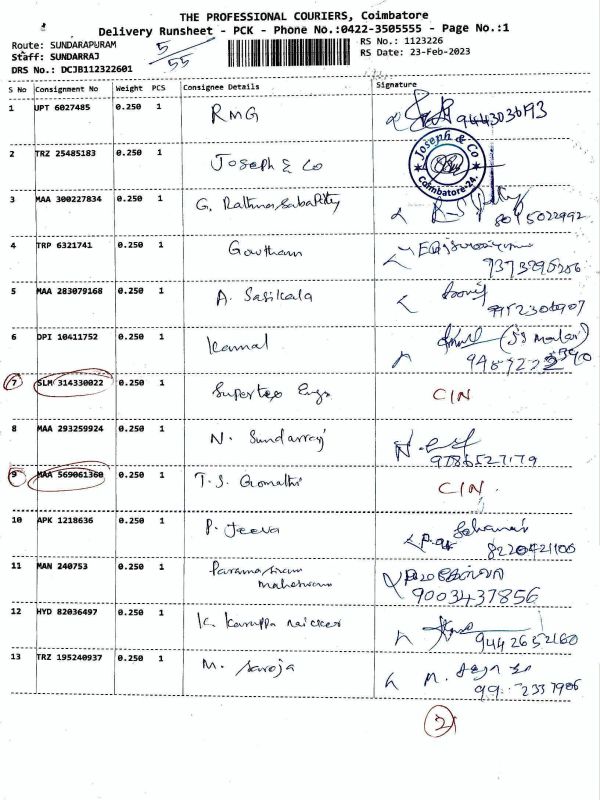 THE PROFESSIONAL COURIERS, Coimbatore
Delivery Runsheet - PCK - Phone No.:0422-3505555 - Page No.:1
Route: SUNDARAPURAM
5/55
RS No.: 1123226
Staff: SUNDARRAJ
RS Date: 23-Feb-2023
DRS No.: DCJB112322601
S No Consignment No Weight PCS Consignee Details Signature
1 UPT 6027485 0.250 1 RMG
2 TRZ 25485183 0.250 1 Joseph & Co
Joseph & Co
Coimbatore-24.
3 MAA 300227834 0.250 1 G. Rathna Sabapathy
8015022992
4 TRP 6321741 0.250 1 Gowtham
5 MAA 283079168 0.250 1 A. Sasikala
6 DPI 10411752 0.250 1 Kamal
7 SLM 314330022 0.250 1 Supertex Engs CIN
8 MAA 293259924 0.250 1 N. Sundarraj
9786527179
9 MAA 569061360 0.250 1 T.S. Gomathi CIN.
10 APK 1218636 0.250 1 P. Jeeva
8220421100
11 MAN 240753 0.250 1 Paramasivam
maheswari
9003437856
12 HYD 82036497 0.250 1 K. Karuppa naicker
9442652160
13 TRZ 195240937 0.250 1 M. Saroja
M.
2